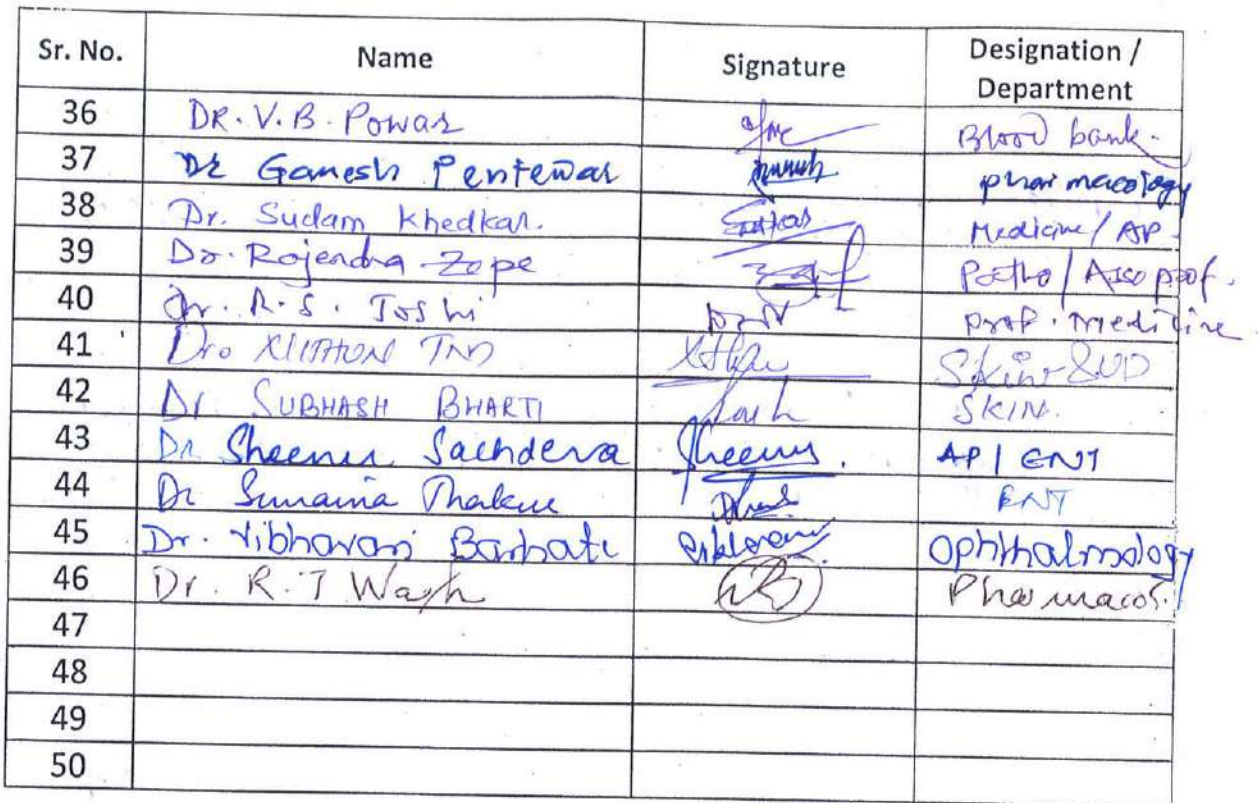 Sr. No. Name Signature Designation / Department
36 DR. V. B. Powar Blood bank.
37 Dr Ganesh Pentewar pharmacology
38 Dr. Sudam Khedkar. Medicine / AP
39 Dr. Rajendra Zope Patho / Asso prof.
40 Dr. R. S. Joshi Prof. Medicine
41 Dr. Skin & VD
42 Dr SUBHASH BHARTI SKIN.
43 Dr Sheenu Sachdeva Sheenu. AP / ENT
44 Dr Sunaina Thakur ENT
45 Dr. Vibhavari Barhate Ophthalmology
46 Dr. R. T Wagh Pharmacol.
47
48
49
50